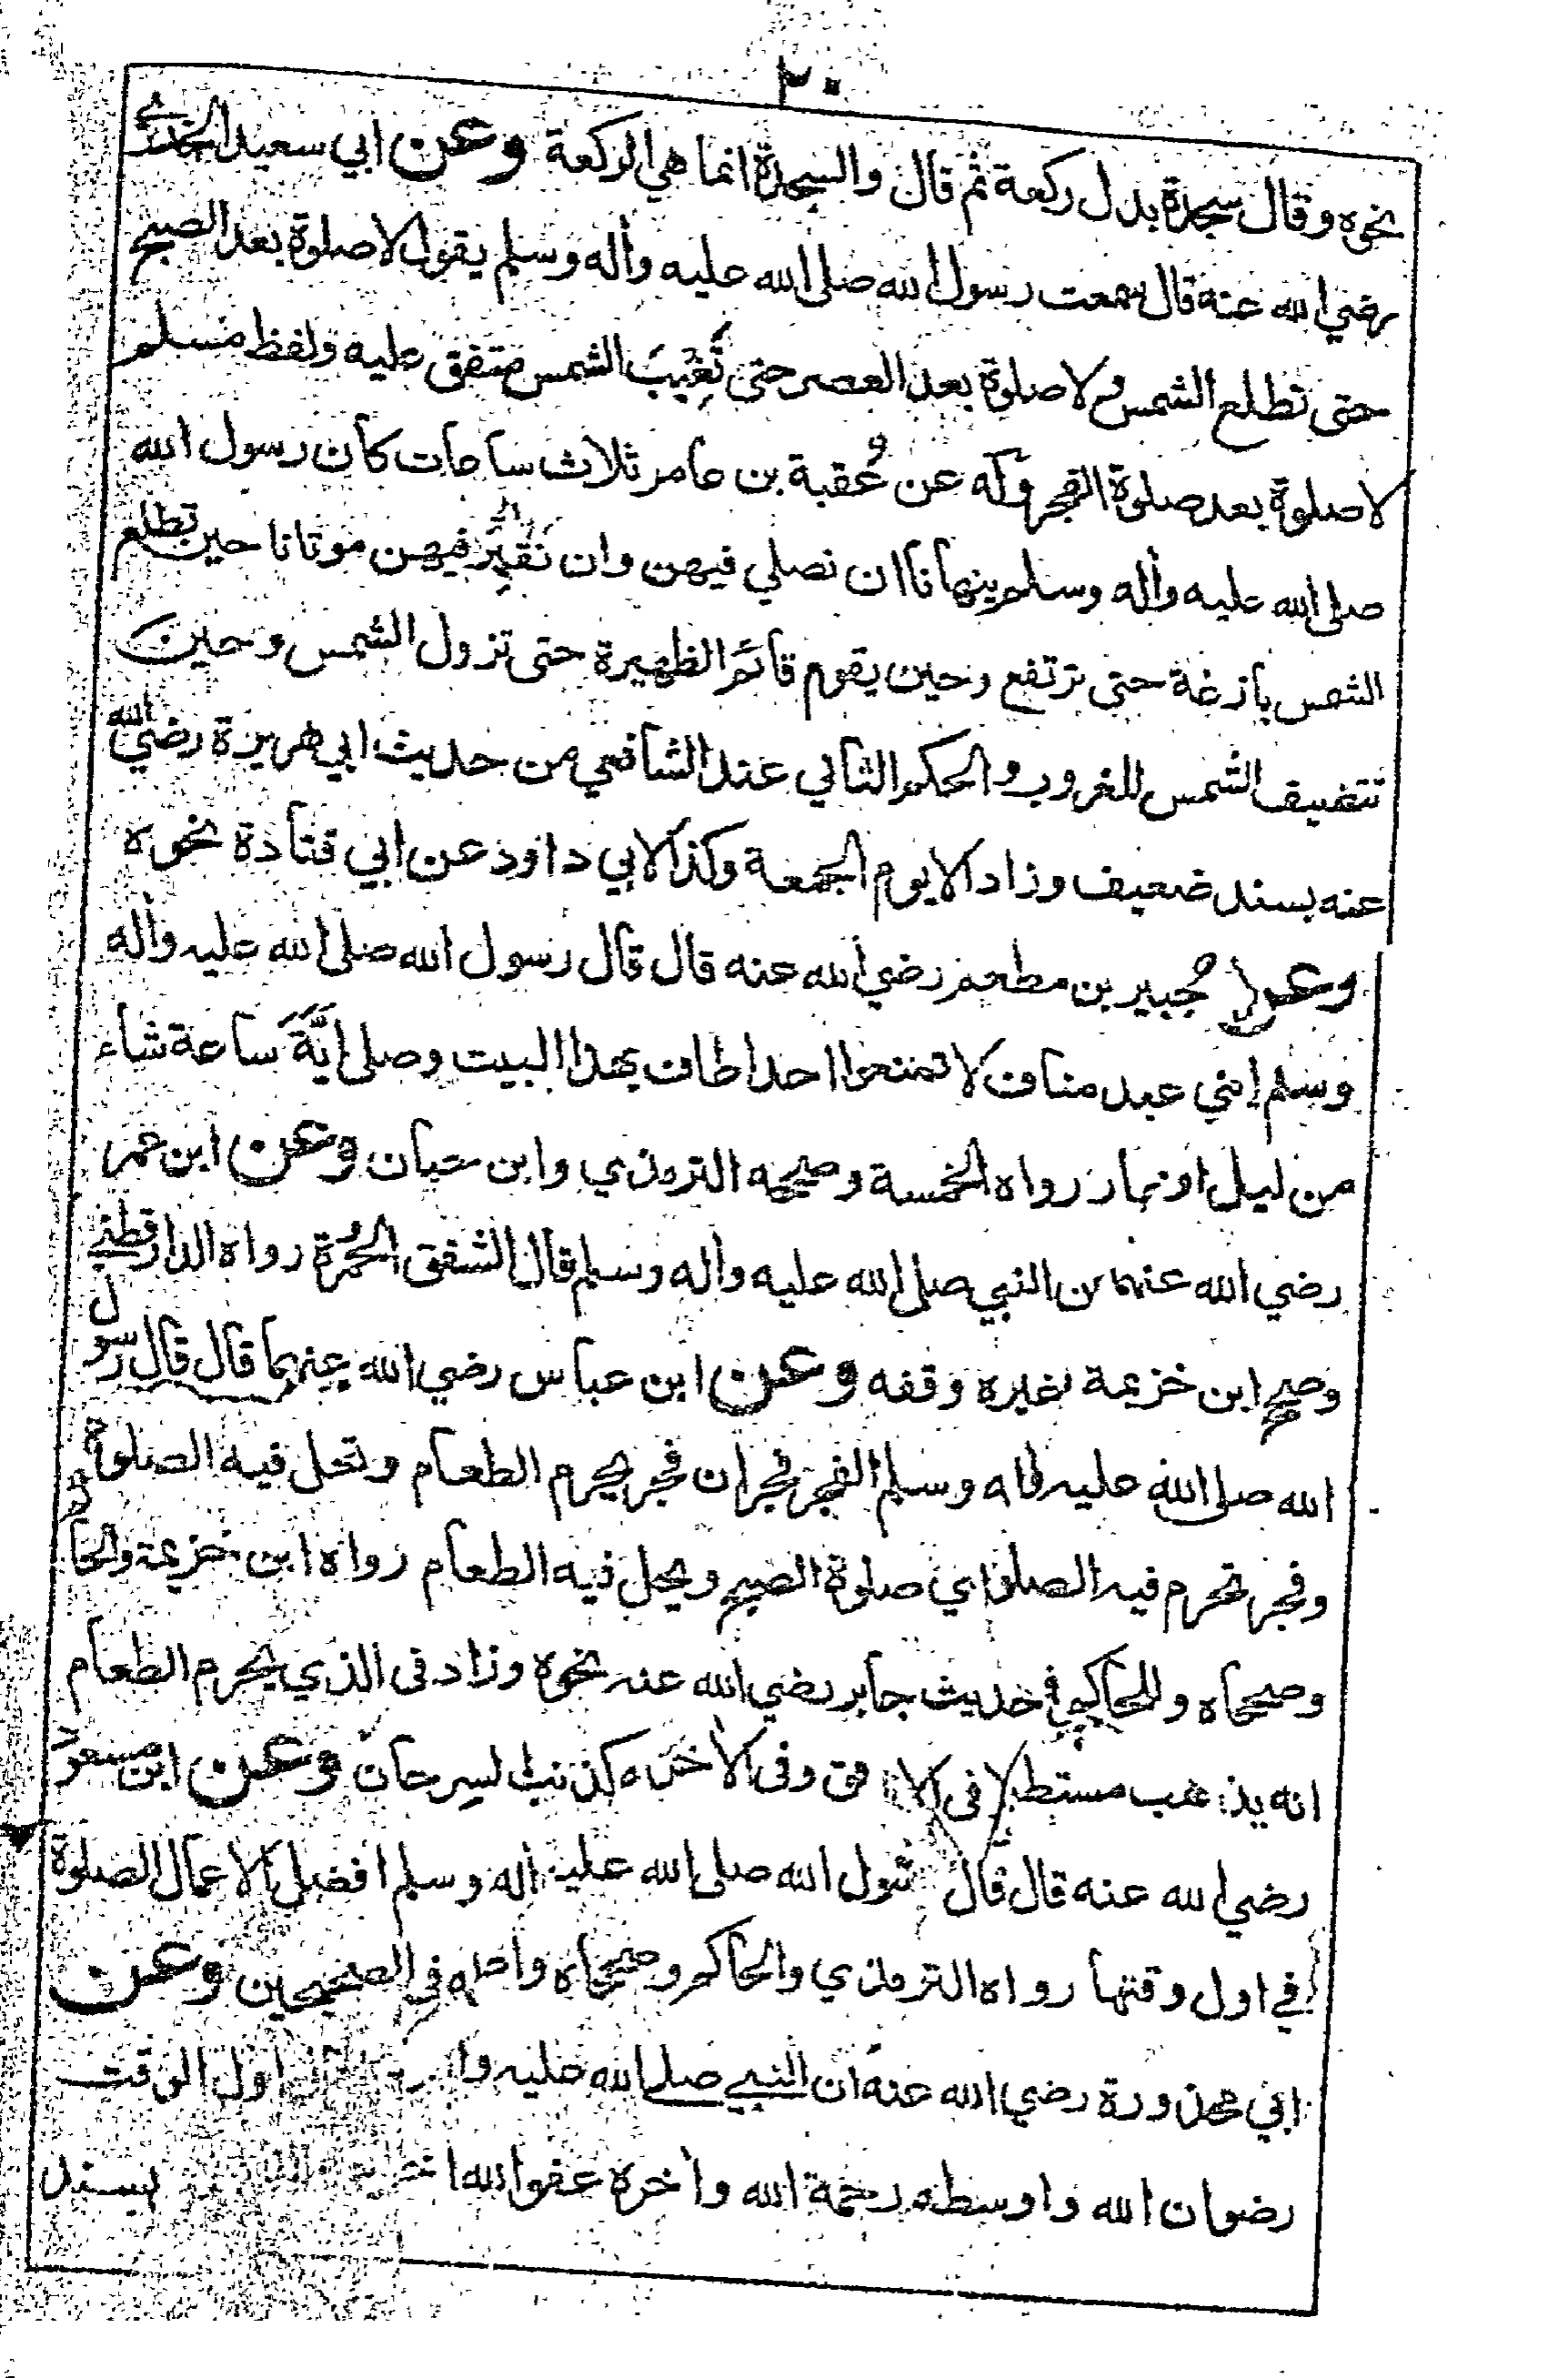 ٢٠
نحوه وقال سجدة بدل ركعة ثم قال والسجدة انما هي الركعة وعن ابي سعيد الخدري
رضي الله عنه قال سمعت رسول الله صلى الله عليه وأله وسلم يقول لا صلوة بعد الصبح
حتى تطلع الشمس ولا صلوة بعد العصر حتى تَغِيْبَ الشمس متفق عليه ولفظ مسلم
لا صلوة بعد صلوة الفجر وله عن عُقبة بن عامر ثلاث ساعات كان رسول الله
صلى الله عليه وأله وسلم ينهانا ان نصلي فيهن وان نَقْبُرَ فيهن موتانا حين تطلع
الشمس بازغة حتى ترتفع وحين يقوم قائم الظهيرة حتى تزول الشمس وحين
تتضيف الشمس للغروب والحكم الثاني عند الشافعي من حديث ابي هريرة رضي الله
عنه بسند ضعيف وزاد الا يوم الجمعة وكذا لابي داود عن ابي قتادة نحوه
وعن جُبير بن مطعم رضي الله عنه قال قال رسول الله صلى الله عليه وأله
وسلم يا بني عبد مناف لا تمنعوا احدا طاف بهذا البيت وصلى ايَّةَ ساعة شاء
من ليل او نهار رواه الخمسة وصححه الترمذي وابن حبان وعن ابن عمر
رضي الله عنهما عن النبي صلى الله عليه وأله وسلم قال الشفق الحُمْرة رواه الدارقطني
وصحح ابن خزيمة غيره وقفه وعن ابن عباس رضي الله عنهما قال قال رسول
الله صلى الله عليه وأله وسلم الفجر فجران فجر يحرم الطعام وتحل فيه الصلوة
وفجر تحرم فيه الصلوة اي صلوة الصبح ويحل فيه الطعام رواه ابن خزيمة والحاكم
وصححاه وللحاكم في حديث جابر رضي الله عنه نحوه وزاد في الذي يحرم الطعام
انه يذهب مستطيلا في الافق وفي الأخر انه كذنب السِرحان وعن ابن مسعود
رضي الله عنه قال قال رسول الله صلى الله عليه وأله وسلم افضل الاعمال الصلوة
في اول وقتها رواه الترمذي والحاكم وصححاه واصله في الصحيحين وعن
ابي محذورة رضي الله عنه ان النبي صلى الله عليه اول الوقت
رضوان الله واوسطه رحمة الله وأخره عفو الله بسند